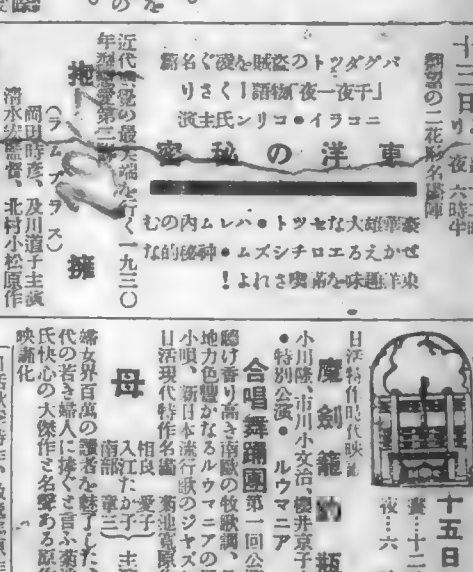 十三日より夜六時半
バグダットの盗賊を凌ぐ名篇
「千夜一夜物語」くさり
ニコライ●コリン氏主演
東洋の秘密
豪華雄大なセット●ハレム内のむ
せかえるエロチシズム●神秘的な
東洋趣味を満喫されよ！
の最尖端を行く一九三〇
年型戀愛第二
抱擁
(ラムブラス)
岡田時彦、及川道子主演
清水宏監督、北村小松原作
十五日
晝…十二
夜…六
日活特作時代映畫
魔劍籠釣瓶
小川隆、市川小文治、櫻井京子
●特別公演●ルウマニア
合唱舞踊團第一回公
聽け香り高き南歐の牧歌調、
地力色豐かなるルウマニアの
小唄、新日本流行歌のジャズ
日活現代特作名畫 菊池寛原
母
相良愛子
入江たか子
南部章三
主演
婦女界百萬の讀者を魅了した、
代の若き婦人に捧ぐと言ふ菊池
氏快心の大傑作と名聲ある原作
映畫化